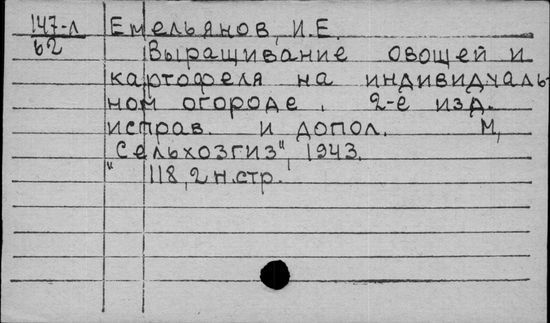 147-л Емельянов, И.Е.
62 Выращивание овощей и
картофеля на индивидуаль-
ном огороде. 2-е изд.
исправ. и допол. М,
"Сельхозгиз", 1943.
118, 2 н.стр.